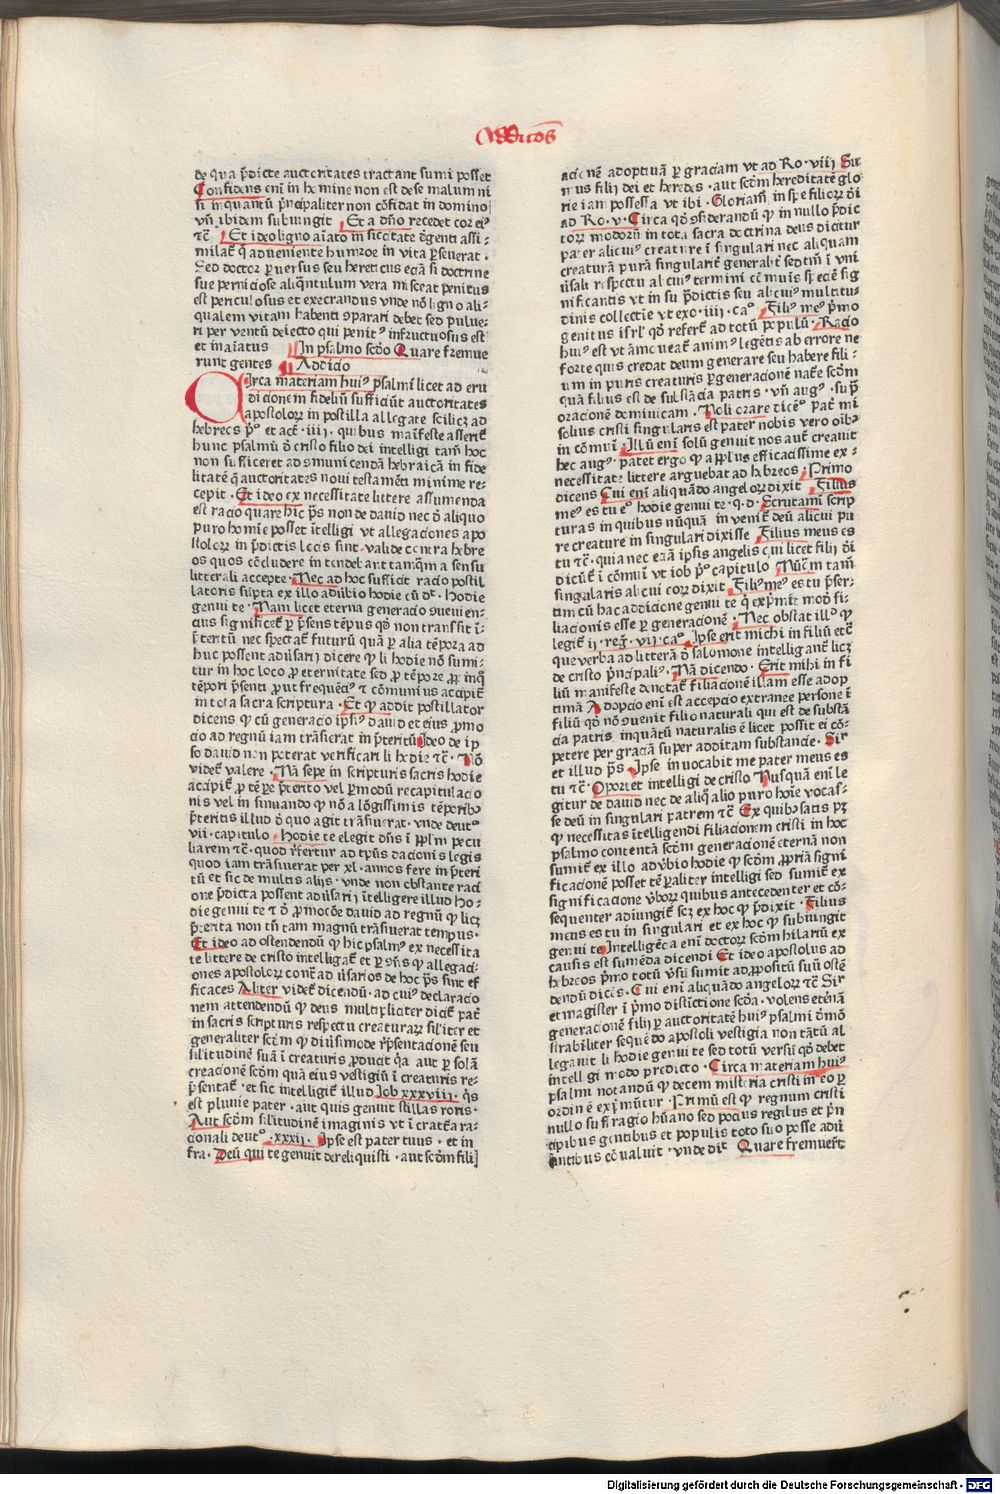 Addicōs
de qua p̄dicte auctoritates tractant sumi posset
Confidens eni in homine non est de se malum ni
si inquantū p̄ncipaliter non cōfidat in domino
vn̄ ibidem subiungit Et a dn̄o recedet cor ei⁹
⁊c̄ Et ideo ligno aīato in siccitate ꝺgenti assi⸗
milat̄ ꝗ̄ adueniente humroe in vita p̱seuerat ·
Sed doctor p̱uersus seu hereticus eciā si doctrine
sue perniciose aliq̄ntulum vera misceat penitus
est periculosus et execrandus vnde nō ligno ali⸗
qualem vitam habenti 9parari debet sed puluer⸗
ri per ventū deiecto qui penit⁹ infructuosus est
et inaīatus In psalmo scd̄o Quare fremue
runt gentes Addicio
Circa materiam hui⁹ psalmi licet ad eru
dicionem fidelium sufficiūt auctoritates
apostolorꝝ in postilla allegate scilicꝫ ad
hebreos p̄⁰ et act̄ · iiii · quibus maīfeste asserit̄
hunc psalmū ꝺ̄ cristo filio dei intelligi tam̄ hoc
non sufficeret ad 9municendā hebraicā in fide
litatē ꝗ̄ auctoritates noui testamēti minime re⸗
cepit · Et ideo ex necessitate littere assumenda
est racio quare hic p̄s non de dauid nec ꝺ̄ aliquo
puro homīe posset ītelligi vt allegaciones apo
stolorꝝ in p̄dictis locis sint valide contra hebre
os quos cōcludere intendebant tamq̄m a sensu
litterali accepte · Nec ad hoc sufficit racio postil
latoris sup̄ta ex illo adūbio hodie cū dt̄ · Hodie
genui te · Nam licet eterna generacio 9ueni en⸗
cius significet̄ p̱ p̄sens tēpus qd̄ non transsit ī⸗
p̄teritū nec spectat̄ futurū quā p̱ alia tēpora ad
huc possent adu̇sarij dicere ꝙ li hodie nō sumi⸗
tur in hoc loco p̱ eternitate sed p̱ tēpore
tēpori p̄senti prout frequēci⁹ ⁊ cōmunius accipit̄
in tota sacra scriptura · Et ꝙ addit postillator
dicens ꝙ cū generacio ipsi⁹ dauid et eius promo
cio ad regnū iam trāsierat in p̄teritū Ideo de ip
so dauid non poterat verificari li hodie ⁊c̄ · Nō
videt̄ valere · Nā sepe in scripturis sacris hodie
accipit̄ p̱ tēpe p̄terito vel p̱ modū recapitulacio
nis vel insinuando ꝙ nō a lōgissimis tēporibꝰ
p̄teritis illud ꝺ̄ quo agit trāsiuerat · vnde deut⁰
vii · capitulo · Hodie te elegit dn̄s ī ppl̄m pecu
liarem ⁊c̄ · quod refertur ad tp̄us dacionis legis
quod iam trāsiuerat per xl · annos fere in p̄teri
tū et sic de multis alijs · vnde non obstante raci
one p̄dicta possent adu̇sarij ītelligere illud Ho⸗
die genui te ⁊ ꝺ̄ p̱mocōe dauid ad regnū ꝙ licꝫ
p̄terita non tn̄ tam magnū trāsiuerat tempus ·
Et ideo ad ostendendū ꝙ hic psalm⁹ ex necessita
te littere de cristo intelligat̄ et p̱ 9n̄s ꝙ allegaci⸗
ones apostolorꝝ contra adu̇sarios de hoc p̄s sint ef
ficaces Aliter videt̄ dicendū · ad cui⁹ declaracio
nem attendendū ꝙ deus multipliciter dicit̄ pat̄
in sacris scripturis respectu creaturarꝝ siliter et
generaliter scd̄m ꝙ diūsimode rep̄sentacionē seu
silitudinē suā ī creaturis producit ꝗ̄a aut p̱ solā
creacionē scd̄m quā eius vestigiū ī creaturis re⸗
p̄sentat̄ · et sic intelligit̄ illud Job xxxviii · q̄s
est pluuie pater · aut quis genuit stillas roris ·
Aut scd̄m silitudinē imaginis vt ī creat̄ea ra⸗
cionali deut⁰ · xxxii · Ipse est pater tuus · et in
fra · Deū qui te genuit dereliquisti · aut scd̄m fili⸗
acionē adoptiuā p̱ graciam vt ad Ro · viii Si
mus filij dei et heredes · aut scd̄m hereditatē glo
rie iam possessa vt ibi · Gloriam̄ in spe filiorꝝ ꝺ̄i
ad Ro · v · Circa qd̄ 9siderandū ꝙ in nullo p̄dic
torꝝ modorū in tota sacra doctrina deus dicitur
pater alicui⁹ creature ī singulari nec aliquam
creaturā purā singularit̄ generabit̄ sed tn̄ ī vni
u̇sali respectu alicui⁹ termini cōmunis speciē sig
nificantis vt in suꝑdictis seu alicui⁹ multitu⸗
dinis collectie vt exo · iiii · ca⁰ Fili⁹ me⁹ p̄mo
genitus isrl̄ qd̄ refert̄ ad totū populū · Racio
hui⁹ est vt āmoueat̄ anim⁹ legētis ab errore ne
forte quis credat deum generare seu habere fili⸗
um in puris creaturis p̱ generacionē nat̄e scd̄m
quā filius est de substācia patris · vn̄ aug⁹ · sup̄
oracionē dominicam · Noli orare dicē⁰ pat̄ mi
solius cristi singularis est pater nobis vero oībꝰ
in cōmuni · Illū eni solū genuit nos aut̄ creauit
hec aug⁹ · patet ergo ꝙ apl̄us efficacissime ex⸗
necessitate littere arguebat ad hebreos · Primo
dicens Cui eni aliquādo angelorꝝ dixit Filius
me⁹ es tu e⁰ hodie genui te · q · d · Scrutami scrip
turas in quibus nūquā inuenit̄ deū alicui pu
re creature in singulari dixisse Filius meus es
tu ⁊c̄ · quia nec eciā ipsis angelis qui licet filij ꝺ̄i
dicūt̄ ī cōmuni vt iob p̄⁰ capitulo Nūc̄m tam̄
singularis alicui eorꝝ dixit Fili⁹ me⁹ es tu p̄ser⸗
tim cū hac addicione genui te ꝗ̄ exp̄mit modū fi⸗
liacionis esse p̱ generacionē · Nec obstat ill⁰ ꝙ
legit̄ ii · reg⁰ · vii · ca⁰ · Ipse erit michi in filiū etc̄
que verba ad litterā ꝺ̄ salomone intelligant̄ licꝫ
de cristo p̄ncipali⁹ · Nā dicendo · Erit mihi in fi
liū manifeste denotat̄ filiacionē illam esse adop
tiuā Adopcio eni est accepcio extranee persone ī
filiū qd̄ nō 9uenit filio naturali qui est de substā
cia patris inquātū naturalis ē licet possit ei cō⸗
petere per graciā super additam substancie · Sic
et illud p̄s Ipse inuocabit me pater meus es
tu ⁊c̄ · Oportet intelligi de cristo Nusquā eni le
gitur de dauid nec de aliq̄ alio puro hoīe vocas⸗
se deū in singulari patrem ⁊c̄ · Ex quibꝰ satis pꝫ
ꝙ necessitas ītelligendi filiacionem cristi in hoc
psalmo contentā scd̄m generacionē eternā non
sumit̄ ex illo adu̇bio hodie ꝙ scd̄m p̱priā signi
ficacionē posset tēp̱aliter intelligi sed sumit̄ ex
significacione v̇borꝝ quibus antecedenter et cō⸗
sequenter adiungit̄ scꝫ ex hoc ꝙ p̄dixit · Filius
meus es tu in singulari et ex hoc ꝙ subiungit
genui te Intelligēcia eni doctorꝝ scd̄m hilariū ex
causis est sumēda dicendi Et ideo apostolus ad
hebreos p̄mo totū v̇su sumit ad p̱positū suū ostē
dendū dicēs · Cui eni aliquādo angelorꝝ ⁊c̄ Sic
et magister ī p̄mo distinctione scd̄a · volens etērnā
generacionē filij p̱ auctoritatē hui⁹ psalmi ꝺ̄mō
strabiliter sequēdo apostoli vestigia non tātū al
legauit li hodie genui te sed totū versū qd̄ debet
intelligi modo predicto · Circa materiam hui⁹
psalmi notandū ꝙ decem misteria cristi in eo p̱
ordinē exp̄mūtur · Primū est ꝙ regnum cristi
nullo suffragio hūano sed pocius regibus et p̄n
cipibus gentibus et populis toto suo posse adū
santibus cōualuit · vnde dīt Quare fremuer̄t
Digitalisierung gefördert durch die Deutsche Forschungsgemeinschaft - DFG